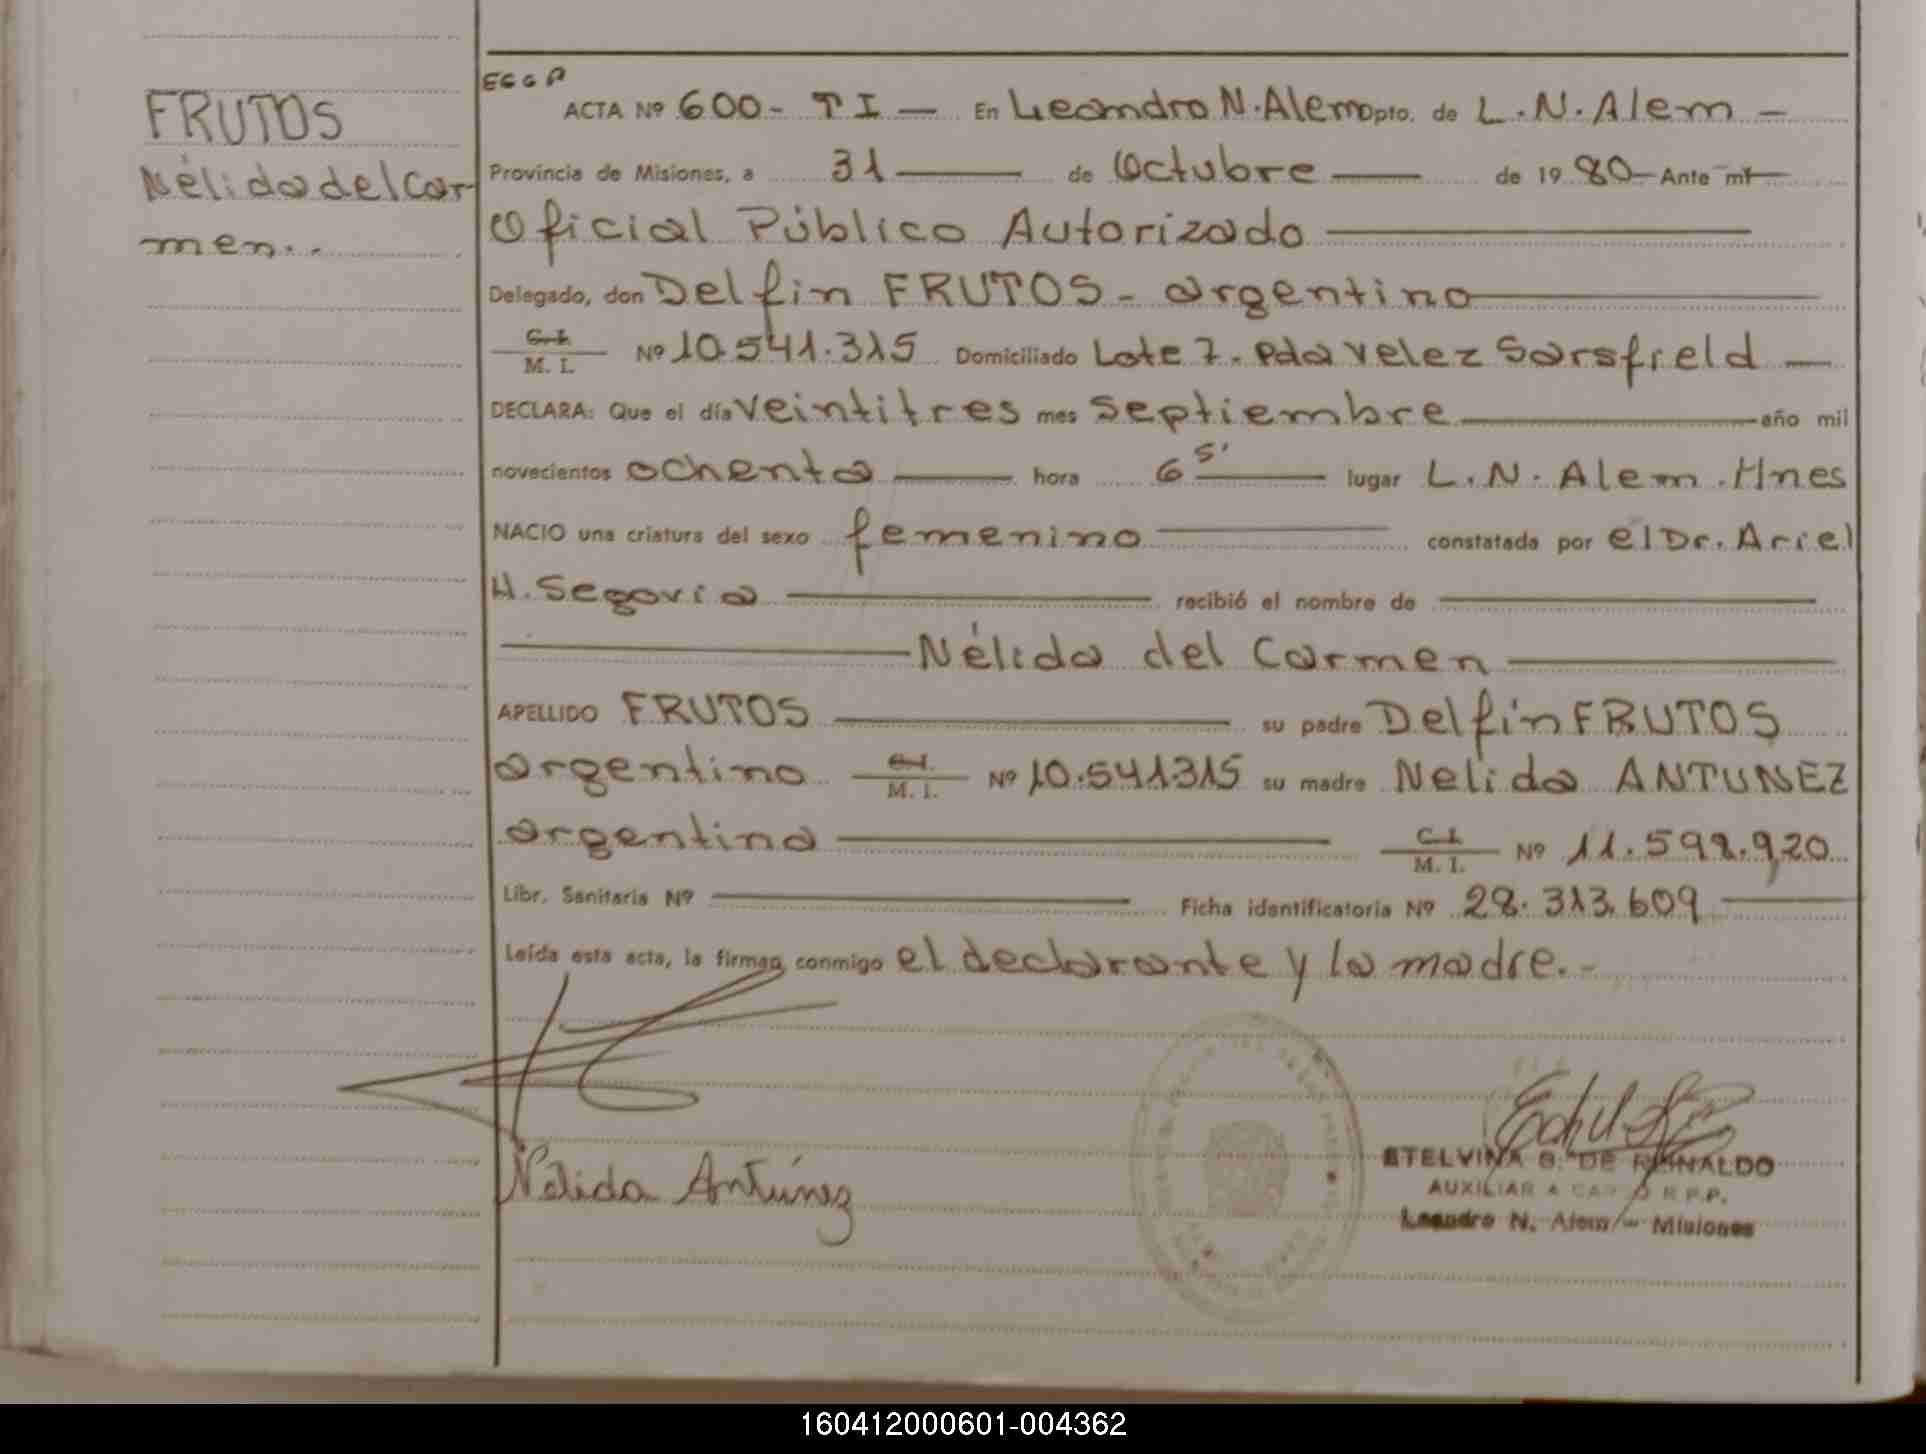 FRUTOS
Nélida del Car-
men..
ACTA Nº 600- TI — En Leandro N. Alem Dpto. de L. N. Alem —
Provincia de Misiones, a 31 — de Octubre — de 1980 — Ante mí —
Oficial Público Autorizado —
Delegado, don Delfin FRUTOS - argentino —
C.I.
M. I. Nº 10.541.315 Domiciliado Lote 7. Pda Velez Sarsfield —
DECLARA: Que el día veintitres mes septiembre — año mil
novecientos ochenta — hora 6 5' — lugar L. N. Alem. Mnes
NACIO una criatura del sexo femenino — constatada por el Dr. Ariel
H. Segovia — recibió el nombre de —
— Nélida del Carmen —
APELLIDO FRUTOS — su padre Delfin FRUTOS
argentino C.I.
M. I. Nº 10.541.315 su madre Nelida ANTUNEZ
argentina — C.I.
M. I. Nº 11.598.920
Libr. Sanitaria Nº — Ficha identificatoria Nº 28.313.609 —
Leída esta acta, la firman conmigo el declarante y la madre.-
Nelida Antúnez
ETELVINA G. DE REINALDO
AUXILIAR A CARGO R.P.P.
Leandro N. Alem - Misiones
160412000601-004362